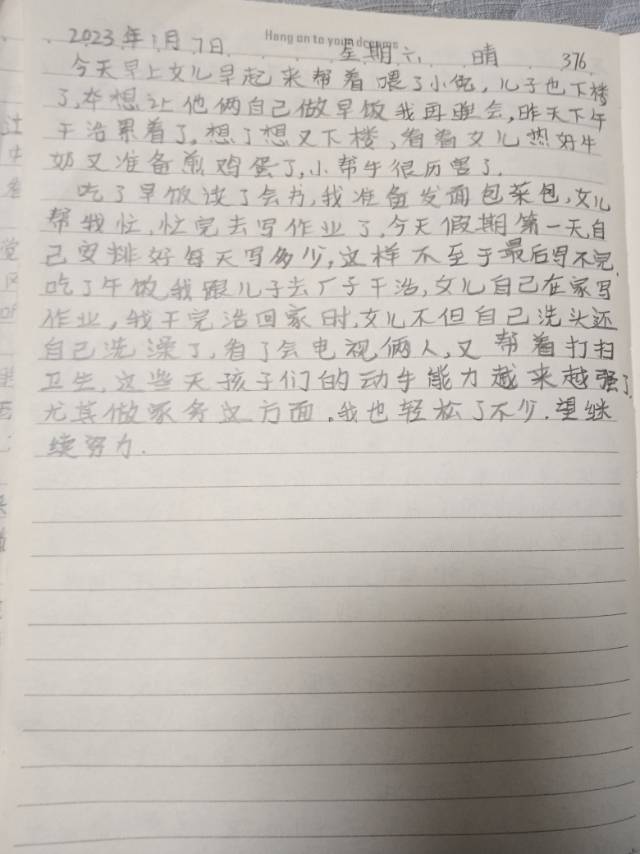 Hang on to your dreams
2023年1月7日 星期六 晴 376
今天早上女儿早起来帮着喂了小兔,儿子也下楼
了,本想让他俩自己做早饭我再睡会,昨天下午
干活累着了,想了想又下楼,看着女儿热好牛
奶又准备煎鸡蛋了,小帮手很历害了.
吃了早饭读了会书,我准备发面包菜包,女儿
帮我忙,忙完去写作业了,今天假期第一天自
己安排好每天写多少,这样不至于最后写不完.
吃了午饭,我跟儿子去厂子干活,女儿自己在家写
作业,我干完活回家时,女儿不但自己洗头还
自己洗澡了,看了会电视俩人,又帮着打扫
卫生,这些天孩子们的动手能力越来越强了.
尤其做家务这方面.我也轻松了不少.望继
续努力.